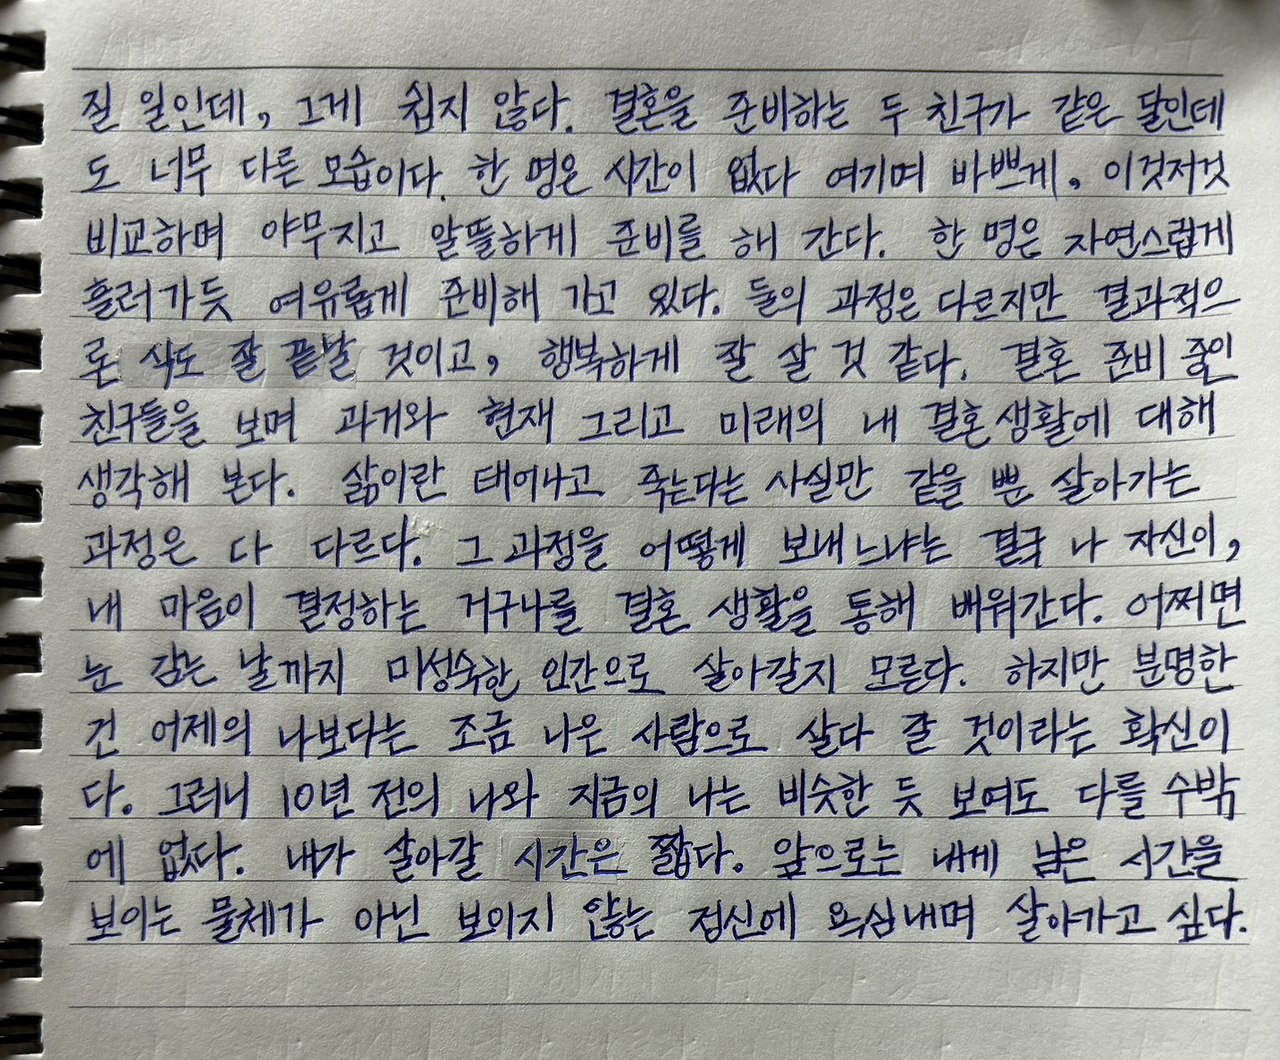 질 일인데, 그게 쉽지 않다. 결혼을 준비하는 두 친구가 같은 달인데
도 너무 다른 모습이다. 한 명은 시간이 없다 여기며 바쁘게, 이것저것
비교하며 야무지고 알뜰하게 준비를 해 간다. 한 명은 자연스럽게
흘러가듯 여유롭게 준비해 가고 있다. 둘의 과정은 다르지만 결과적으
론 식도 잘 끝날 것이고, 행복하게 잘 살 것 같다. 결혼 준비 중인
친구들을 보며 과거와 현재 그리고 미래의 내 결혼생활에 대해
생각해 본다. 삶이란 태어나고 죽는다는 사실만 같을 뿐 살아가는
과정은 다 다르다. 그 과정을 어떻게 보내느냐는 결국 나 자신이,
내 마음이 결정하는 거구나를 결혼 생활을 통해 배워간다. 어쩌면
눈 감는 날까지 미성숙한 인간으로 살아갈지 모른다. 하지만 분명한
건 어제의 나보다는 조금 나은 사람으로 살다 갈 것이라는 확신이
다. 그러니 10년 전의 나와 지금의 나는 비슷한 듯 보여도 다를 수밖
에 없다. 내가 살아갈 시간은 짧다. 앞으로는 내게 남은 시간을
보이는 물체가 아닌 보이지 않는 정신에 욕심내며 살아가고 싶다.